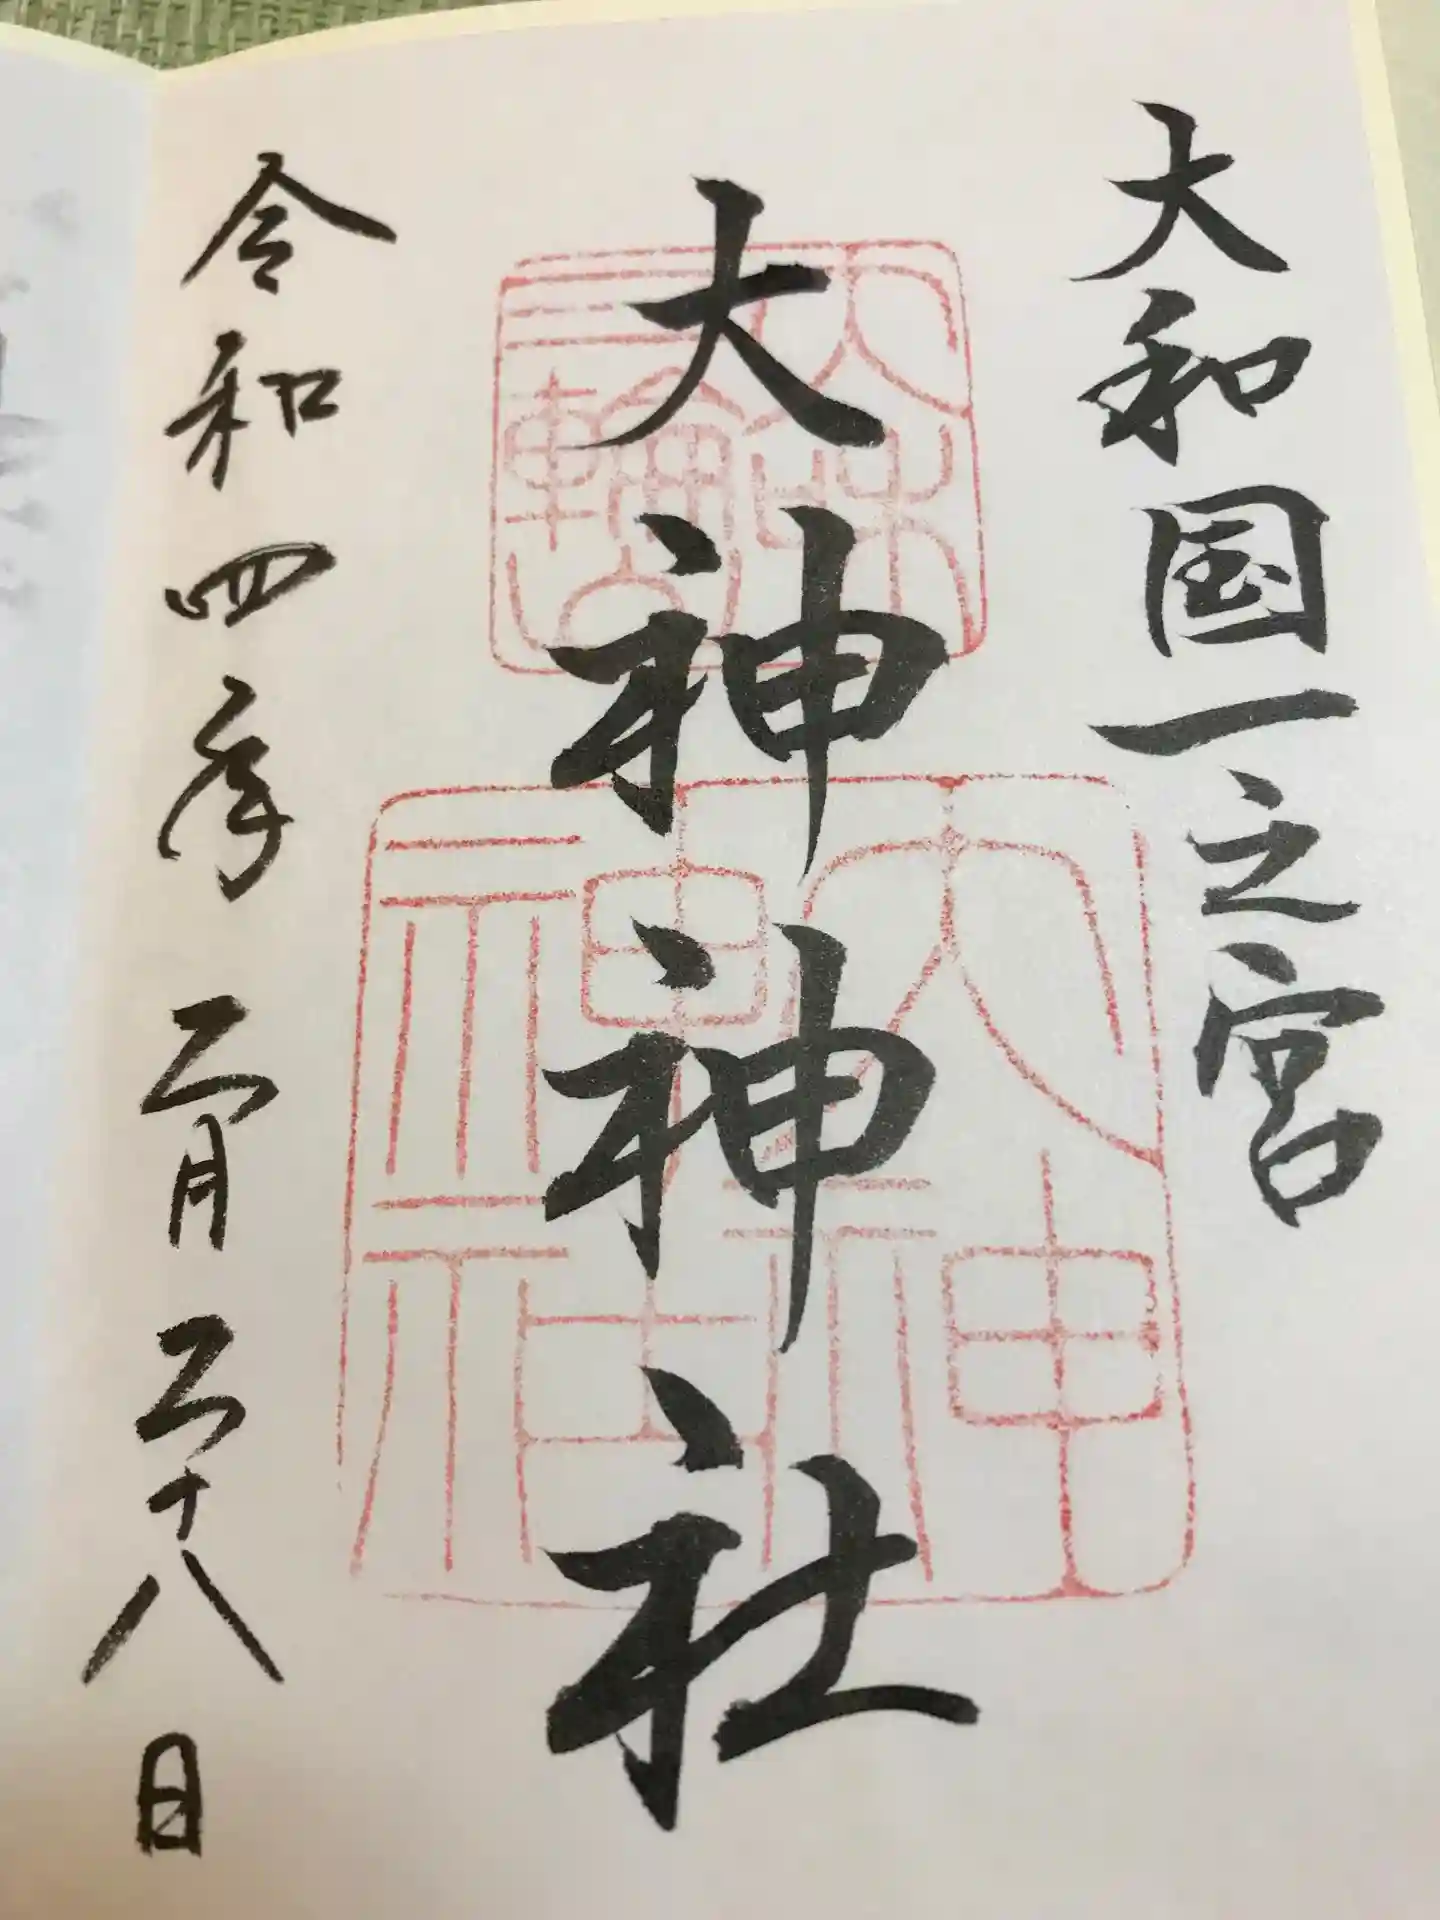 大和国一之宮
大神神社
大神神社
令和四年二月二十八日